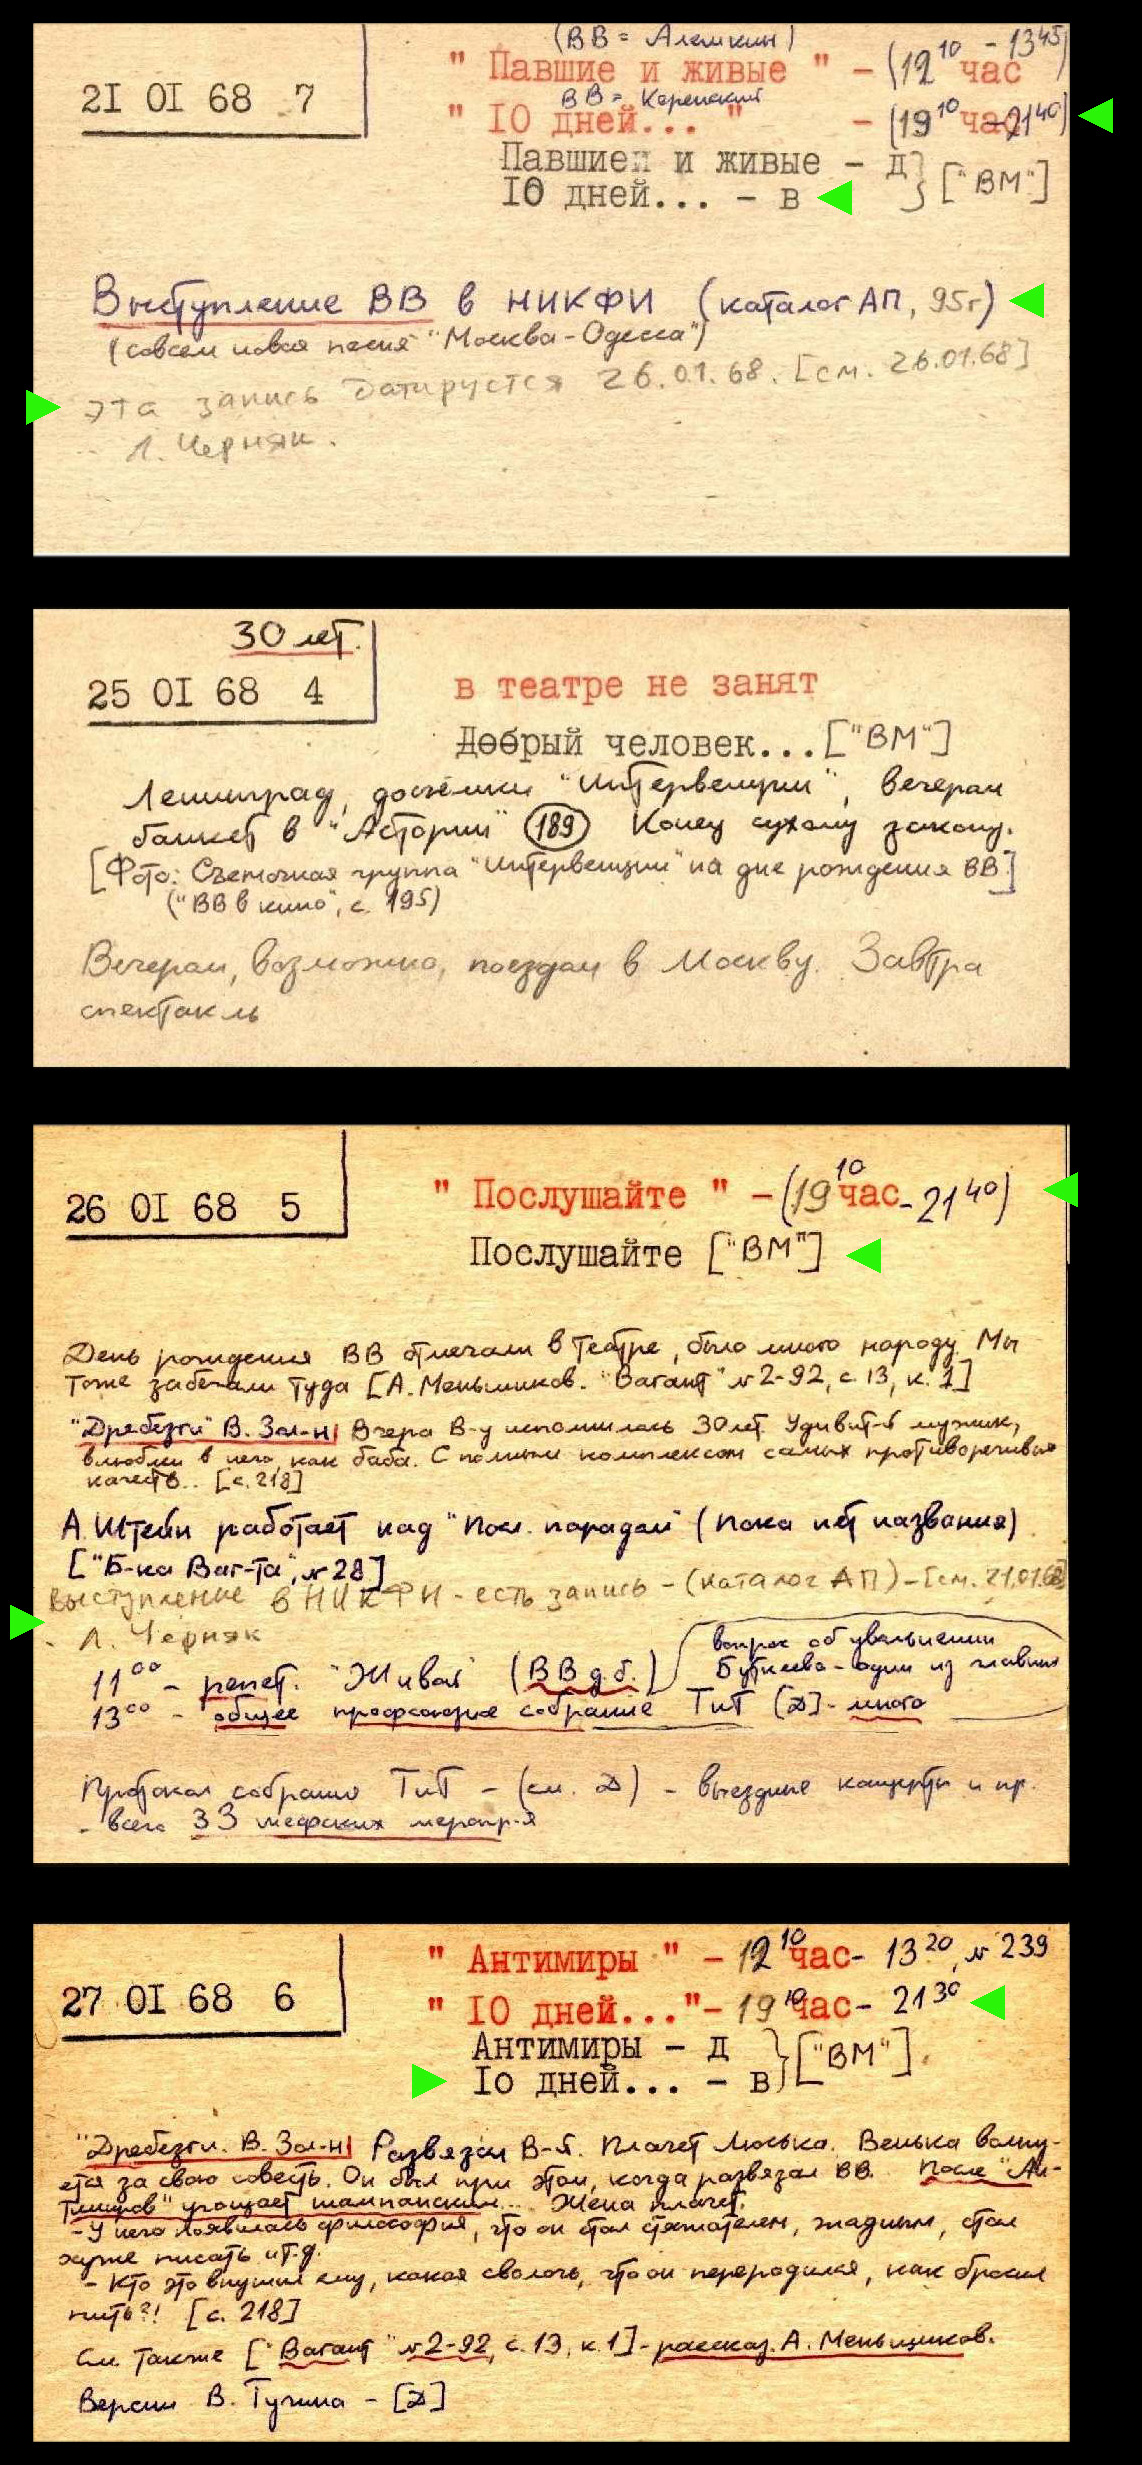 (ВВ = Алешкин)
21 01 68 7
" Павшие и живые " – (12 10 час - 13 45)
ВВ = Керенский
" 10 дней... " – (19 10 час - 21 40)
Павшие и живые – д
10 дней... – в } ["ВМ"]
Выступление ВВ в НИКФИ (каталог АП, 95г)
(совсем новая песня "Москва-Одесса")
эта запись датируется 26.01.68. [см. 26.01.68]
Л. Черняк.
30 лет.
25 01 68 4
в театре не занят
Добрый человек... ["ВМ"]
Ленинград, досъёмки "Интервенции", вечером
банкет в "Астории" (189) Конец сухому закону.
[Фото: Съемочная группа "Интервенции" на дне рождения ВВ]
("ВВ в кино", с. 195)
Вечером, возможно, поездом в Москву. Завтра
спектакль
26 01 68 5
" Послушайте " – (19 10 час - 21 40)
Послушайте ["ВМ"]
День рождения ВВ отмечали в театре, было много народу. Мы
тоже забегали туда [А. Меньшиков. "Вагант" №2-92, с. 13, к. 1]
"Дребезги" В. Зол-н Вчера В-у исполнилось 30 лет. Удивит-й мужик,
влюблен в него, как баба. С полным комплексом самых противоречивых
качеств.. [с. 218]
А. Штейн работает над "Посл. парадом" (пока нет названия)
["Б-ка Ваг-та", №28]
Выступление в НИКФИ - есть запись - (каталог АП) - [см. 21.01.68]
- Л. Черняк
11 00 - репет. "Живой" (ВВ д.б.)
вопрос об увольнении
Буткеева - один из главных
13 00 - общее профсоюзное собрание ТиТ [Д] - много
Протокол собрания ТиТ - (см. Д) - выездные концерты и пр.
- всего 33 шефских меропр-я
27 01 68 6
" Антимиры " – 12 10 час - 13 20, № 239
" 10 дней..." – 19 10 час - 21 30
Антимиры – д
10 дней... – в } ["ВМ"].
"Дребезги. В. Зол-н Развязал В-й. Плачет Люська. Венька волну-
ется за свою совесть. Он был при этом, когда развязал ВВ. После "Ан-
тимиров" угощает шампанским... Жена плачет.
- У него появилась философия, что он стал стяжателем, жадным, стал
хуже писать и т.д.
- Кто это внушил ему, какая сволочь, что он переродился, как бросил
пить?! [с. 218]
См. также ["Вагант" №2-92, с. 13, к. 1] - рассказ А. Меньщиков.
Версия В. Тучина - [Д]